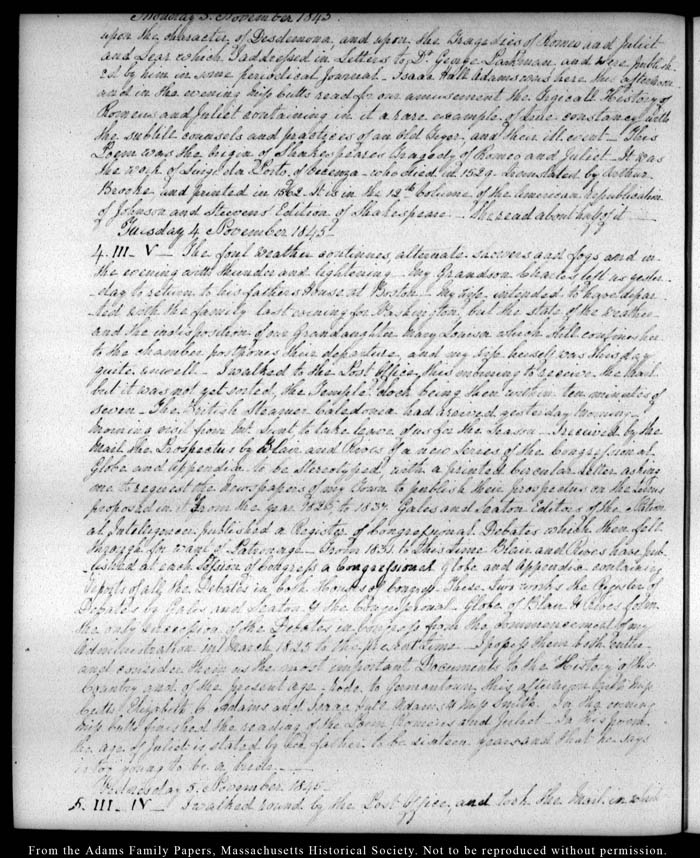 Monday 3. November 1845.
upon the character of Desdemona, and upon the Tragedies of Romeo and Juliet
and Lear which I addressed in Letters to Dr. George Parkman and were publish-
ed by him in some periodical journal — Isaac Hull Adams was here this afternoon
and in the evening Miss Cutts read for our amusement the Tragicall History of
Romeus and Juliet containing in it a rare example of love constancy, with
the subtill counsels and practices of an old Fryer, and their ill event — This
Poem was the origin of Shakespeare's Tragedy of Romeo and Juliet — It was
the work of Luigi da Porto, of Vicenza, who died in 1529. translated by Arthur
Brooke, and printed in 1562. It is in the 12th. volume of the American republication
of Johnson and Steevens' Edition of Shakespeare — She read about half of it —
Tuesday 4. November 1845.
4. III — V — The foul weather continues, alternate showers and fogs and in
the evening with thunder and lightening — My Grandson Charles left us yester-
day to return to his father's House at Boston — My wife, intended to have depar-
ted with the family last evening for Washington, but the state of the weather
and the indisposition of our Grandaughter Mary Louisa which still confines her
to the chamber postpones their departure, and my wife herself was this day
quite unwell — I walked to the Post Office, this morning to receive the mail
but it was not yet sorted, the Temple clock being then within ten minutes of
seven — The British Steamer Caledonia had arrived yesterday morning —
Morning visit from Mr. Lunt to take leave of us for the season — I received by the
Mail the Prospectus by Blair and Rives of a new Series of the Congressional
Globe and Appendix to be stereotyped, with a printed circular Letter asking
me to request the Newspapers of my Town to publish their prospectus on the terms
proposed in it. From the year 1825, to 1837. Gales and Seaton Editors of the Nation-
al Intelligencer published a Register of Congressional Debates which then fell
through for want of Patronage — From 1833. to this time Blair and Rives have pub-
lished at each Session of Congress a Congressional Globe and appendix containing
reports of all the Debates in both Houses of Congress. These two works the Register of
Debates by Gales and Seaton, & the Congressional Globe of Blair & Rives form
the only succession of the Debates in Congress from the commencement of my
Administration in March 1825 to the present time — I possess them both entire
and consider them as the most important Documents to the History of this
Country and of the present age. Rode to Germantown this afternoon with Miss
Cutts, Elizabeth C. Adams and Isaac Hull Adams & Miss Smith. In the evening
Miss Cutts finished the reading of the Poem Romeus and Juliet — In this poem
the age of Juliet is stated by her father to be sixteen years and that he says
is too young to be a bride. —
Wednesday 5. November 1845.
5. III — IV — I walked round by the Post-Office, and took the Mail in which
From the Adams Family Papers, Massachusetts Historical Society. Not to be reproduced without permission.